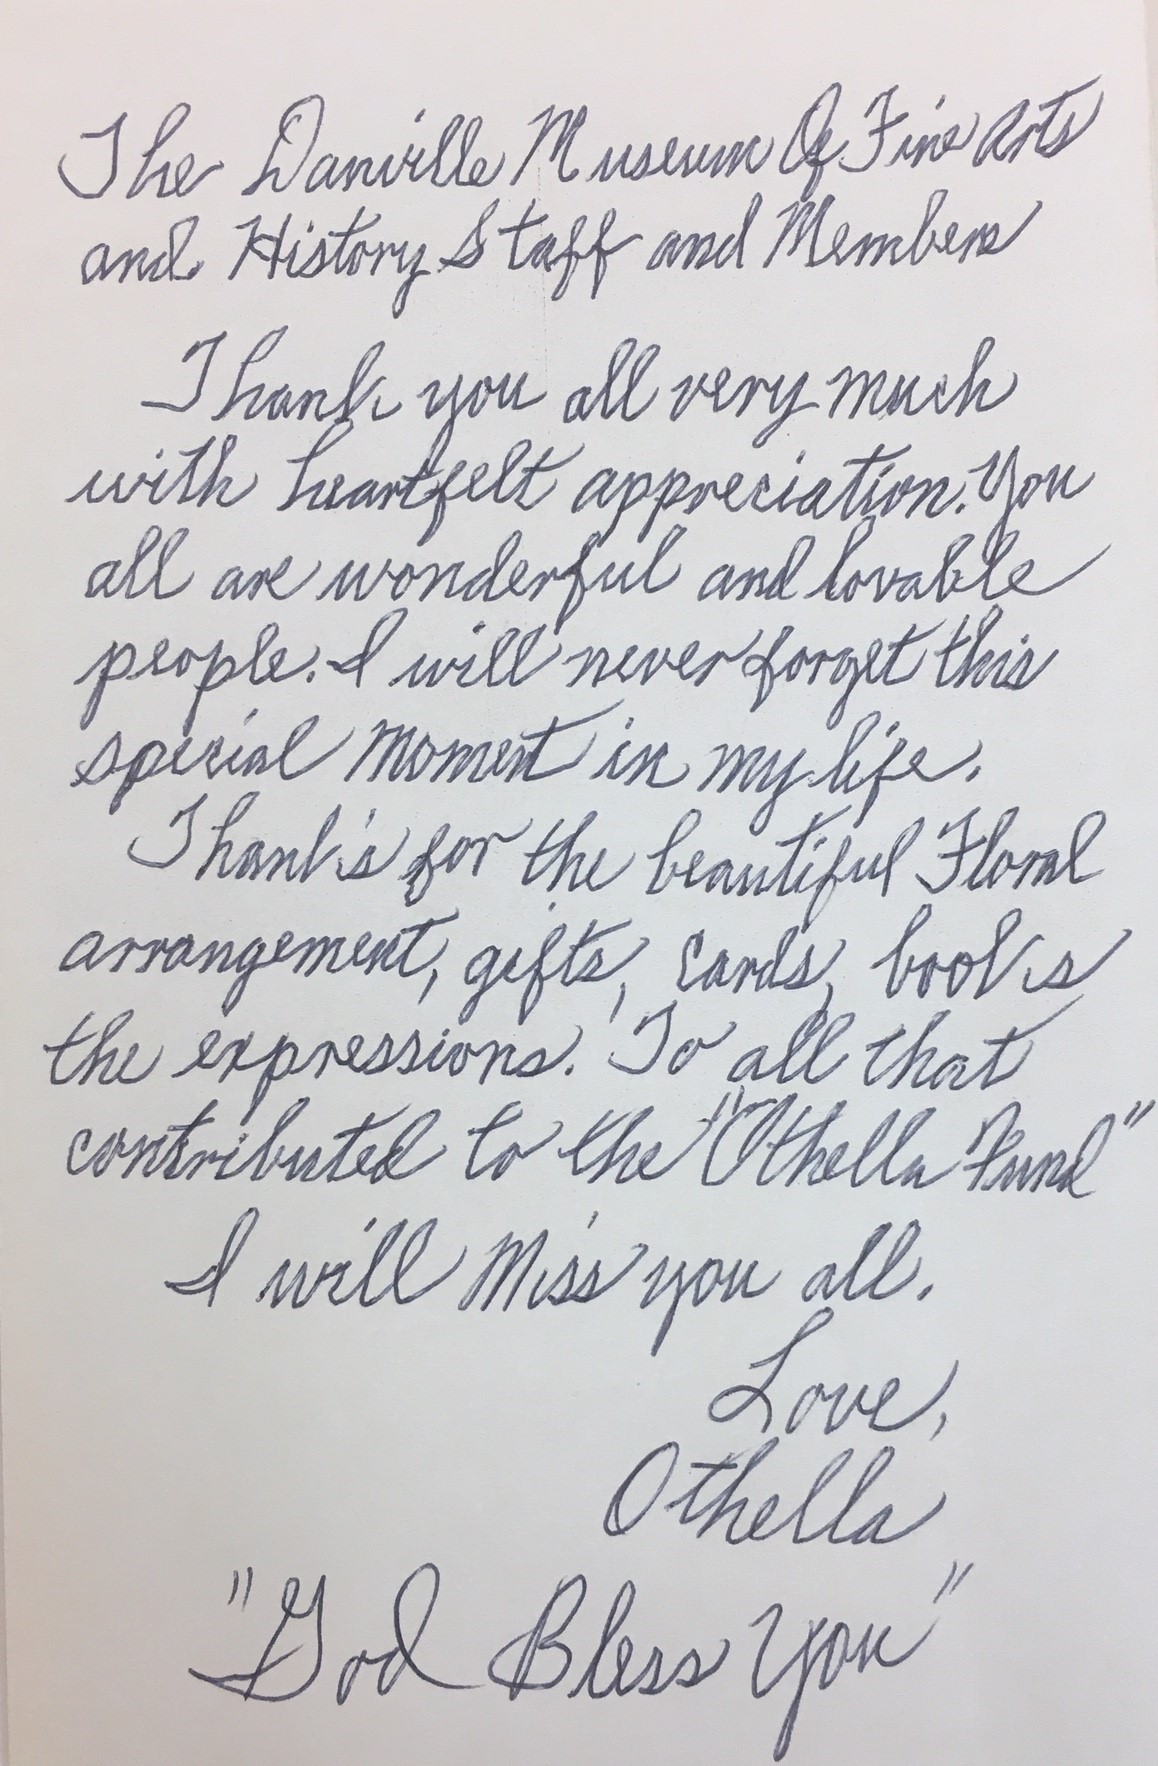 The Danville Museum Of Fine Arts
and History Staff and Members
Thank you all very much
with heartfelt appreciation. You
all are wonderful and lovable
people. I will never forget this
special moment in my life.
Thank's for the beautiful Floral
arrangement, gifts, cards, books
the expressions. To all that
contributed to the "Othella Fund"
I will Miss you all.
Love,
Othella
"God Bless You"